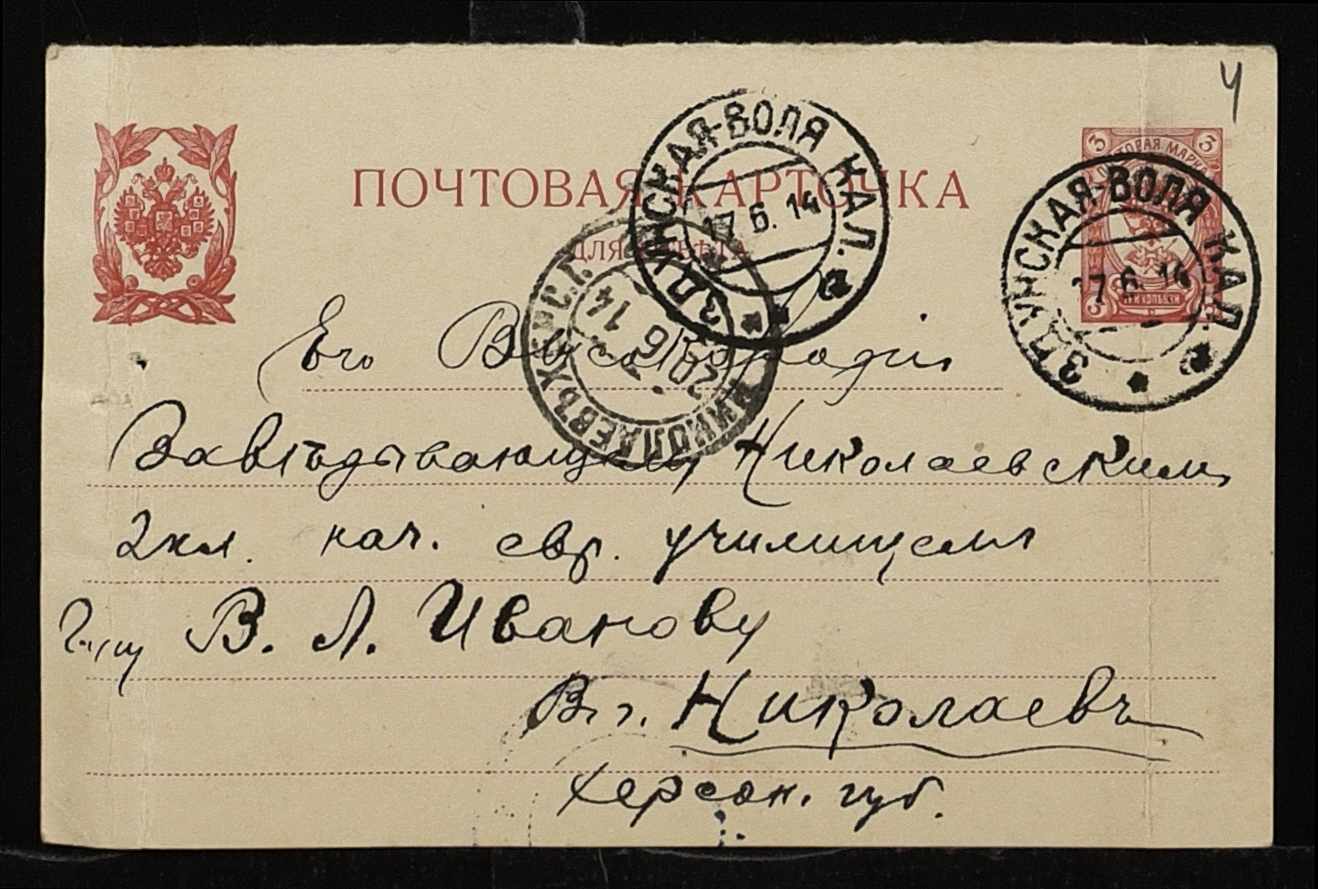 4
ПОЧТОВАЯ КАРТОЧКА
ДЛЯ ОТВѢТА
3 ПОЧТОВАЯ МАРКА 3
3 ТРИ КОПѢЙКИ 3
ЗДУНСКАЯ-ВОЛЯ КАЛ.
17 6. 14
ЗДУНСКАЯ-ВОЛЯ КАЛ.
17 6. 14
НИКОЛАЕВЪ ХЕРС.Г.
20 6 14
Его Высокородiю
Завѣдывающему Николаевскимъ
2кл. нач. евр. училищемъ
В. Л. Иванову
Въ г. Николаевъ
Херсон. губ.